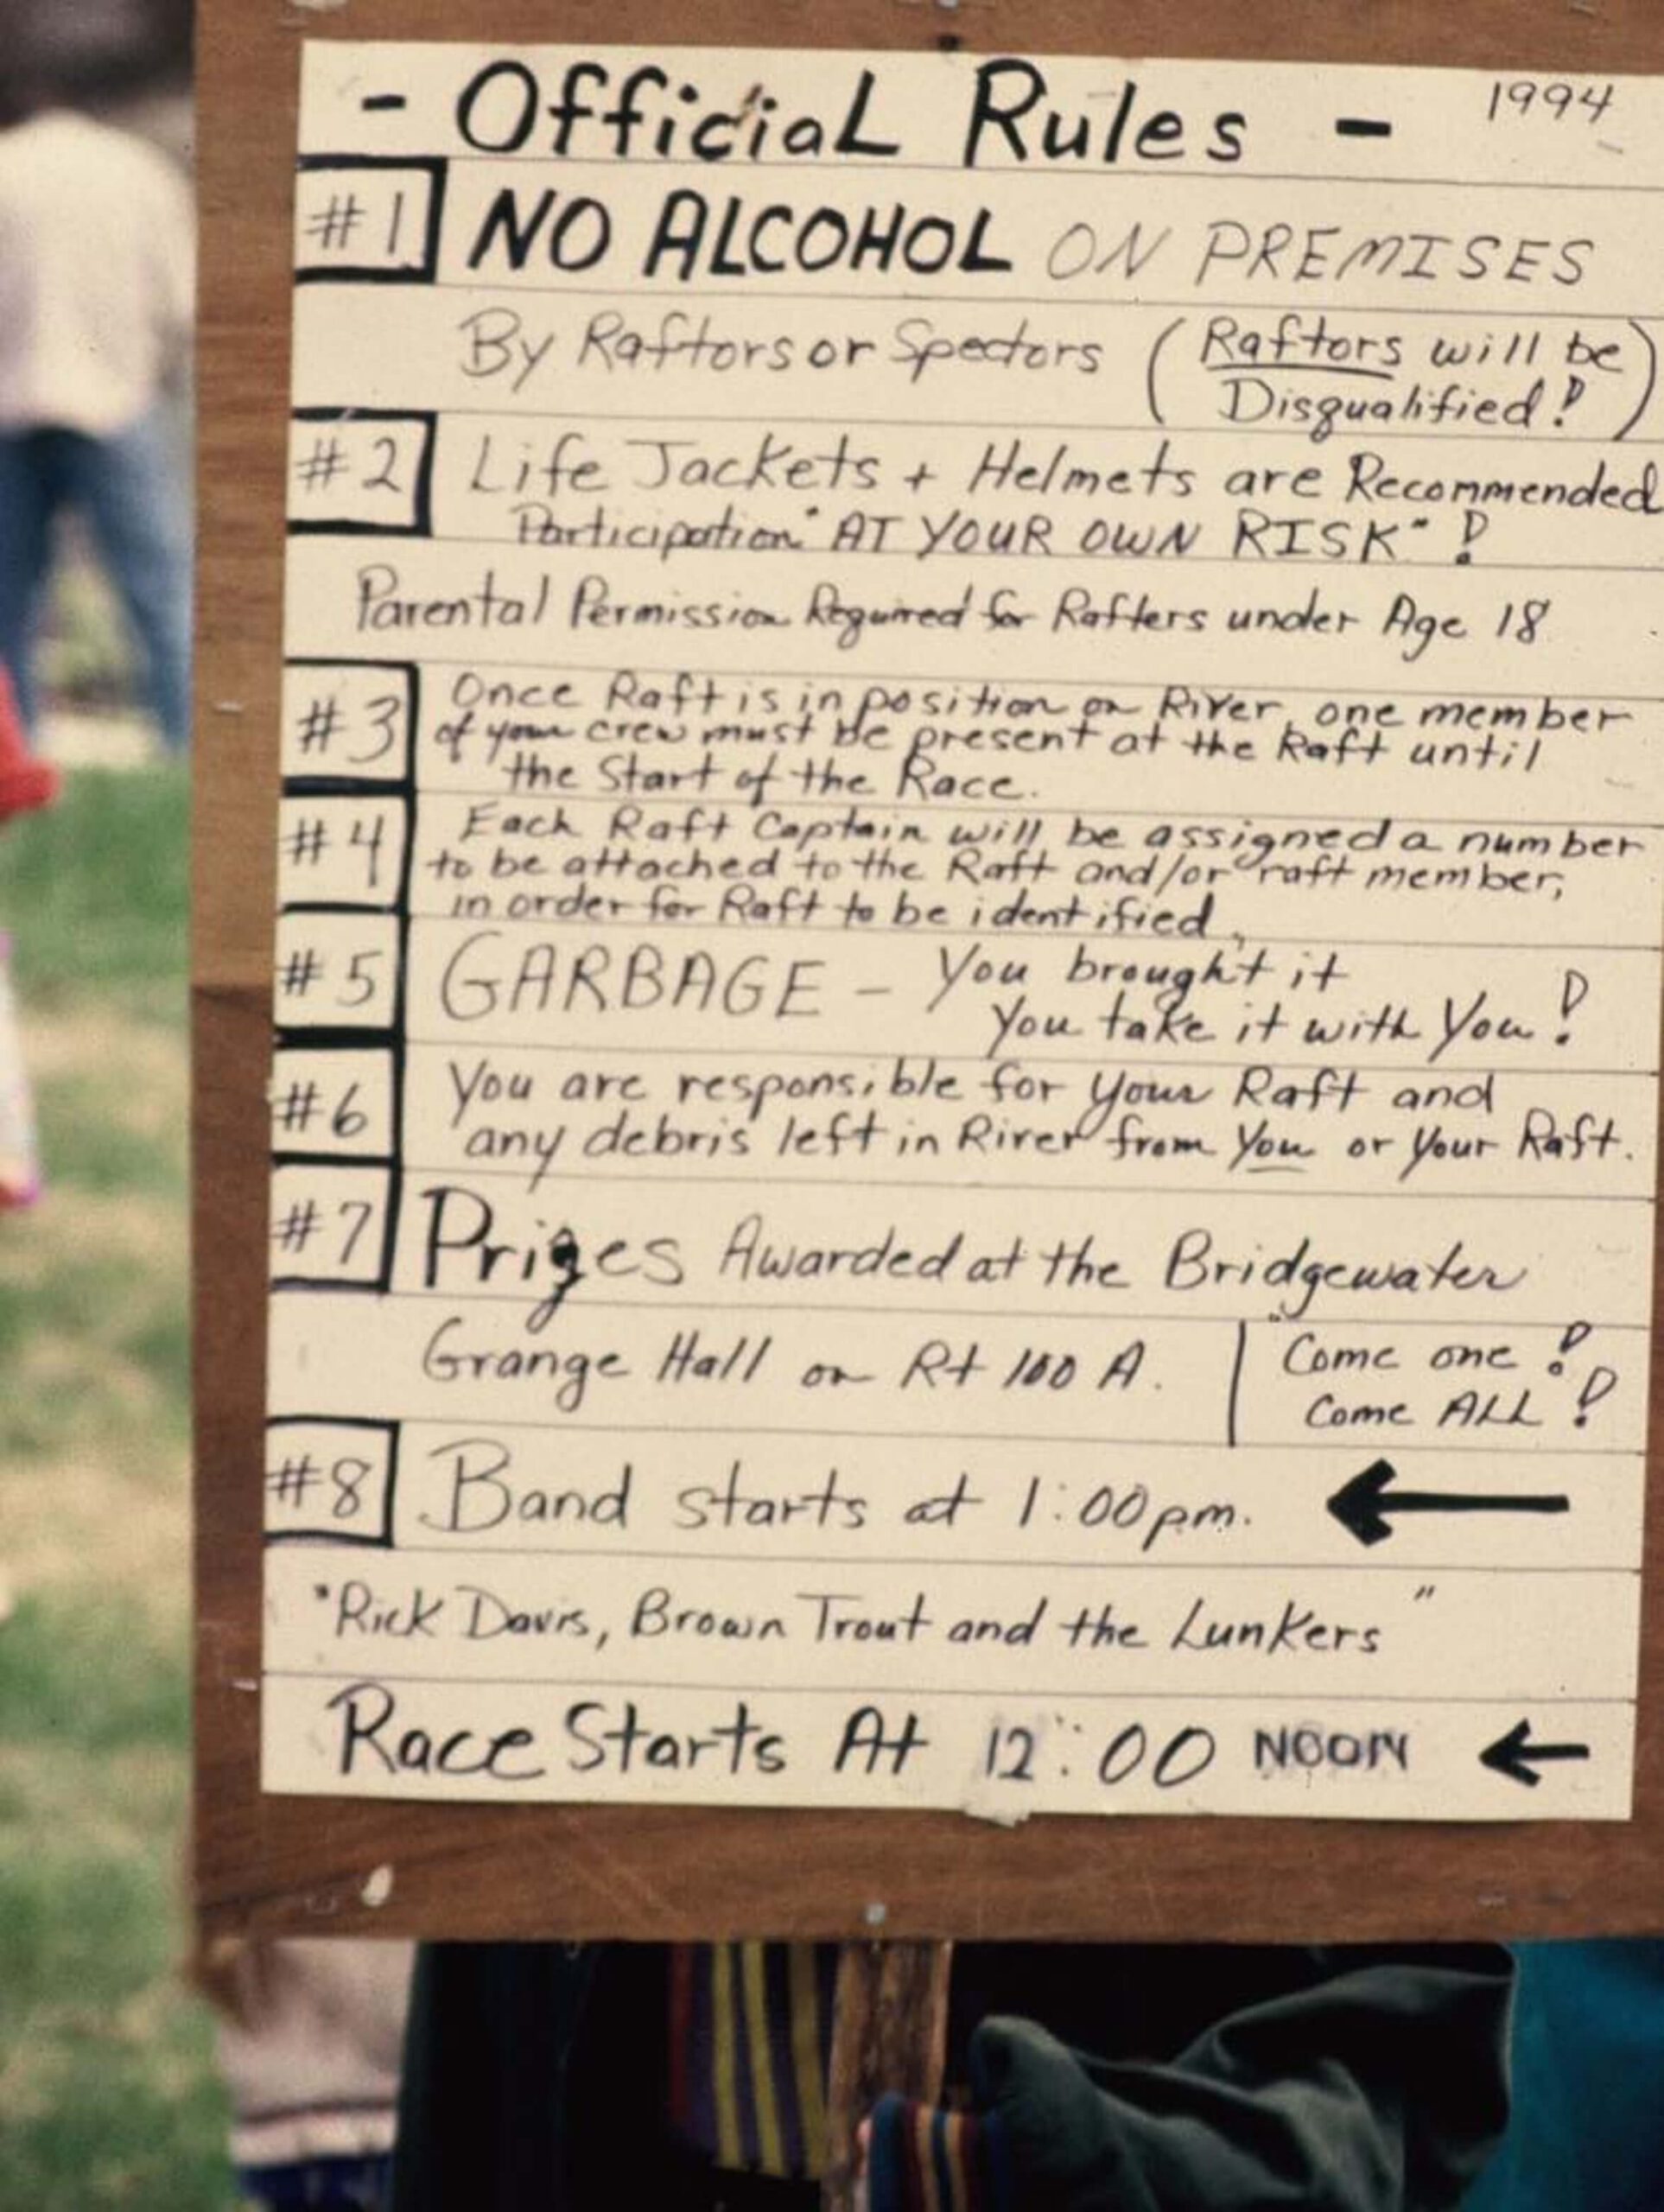 - Official Rules - 1994
#1 NO ALCOHOL ON PREMISES
By Raftors or Spectors (Raftors will be
Disqualified!)
#2 Life Jackets + Helmets are Recommended
Participation "AT YOUR OWN RISK"!
Parental Permission Required for Rafters under Age 18
#3 Once Raft is in position on River, one member
of your crew must be present at the Raft until
the Start of the Race.
#4 Each Raft Captain will be assigned a number
to be attached to the Raft and/or raft member,
in order for Raft to be identified.
#5 GARBAGE - You brought it
You take it with You!
#6 You are responsible for your Raft and
any debris left in River from You or Your Raft.
#7 Prizes Awarded at the Bridgewater
Grange Hall on Rt 100 A. Come one!
Come ALL!
#8 Band starts at 1:00 pm.
"Rick Davis, Brown Trout and the Lunkers"
Race Starts At 12:00 NOON